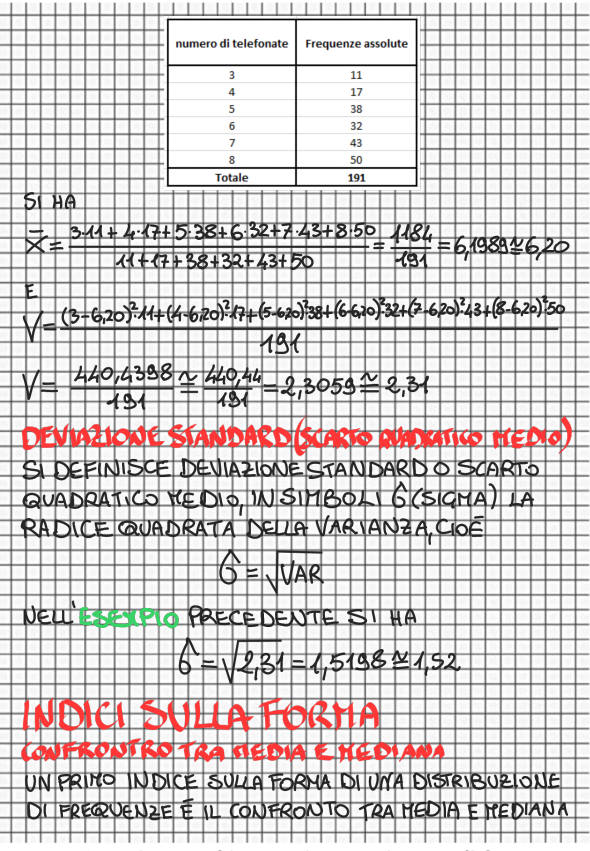 numero di telefonate Frequenze assolute
3 11
4 17
5 38
6 32
7 43
8 50
Totale 191
SI HA
X̄ = (3·11+4·17+5·38+6·32+7·43+8·50)/(11+17+38+32+43+50) = 1184/191 = 6,1989 ≅ 6,20
E
V = ((3-6,20)²·11+(4-6,20)²·17+(5-6,20)²38+(6-6,20)²32+(7-6,20)²43+(8-6,20)²50)/191
V = 440,4398/191 ≅ 440,44/191 = 2,3059 ≅ 2,31
DEVIAZIONE STANDARD (SCARTO QUADRATICO MEDIO)
SI DEFINISCE DEVIAZIONE STANDARD O SCARTO
QUADRATICO MEDIO, IN SIMBOLI σ (SIGMA) LA
RADICE QUADRATA DELLA VARIANZA, CIOÈ
σ = √VAR
NELL'ESEMPIO PRECEDENTE SI HA
σ = √2,31 = 1,5198 ≅ 1,52
INDICI SULLA FORMA
CONFRONTRO TRA MEDIA E MEDIANA
UN PRIMO INDICE SULLA FORMA DI UNA DISTRIBUZIONE
DI FREQUENZE È IL CONFRONTO TRA MEDIA E MEDIANA